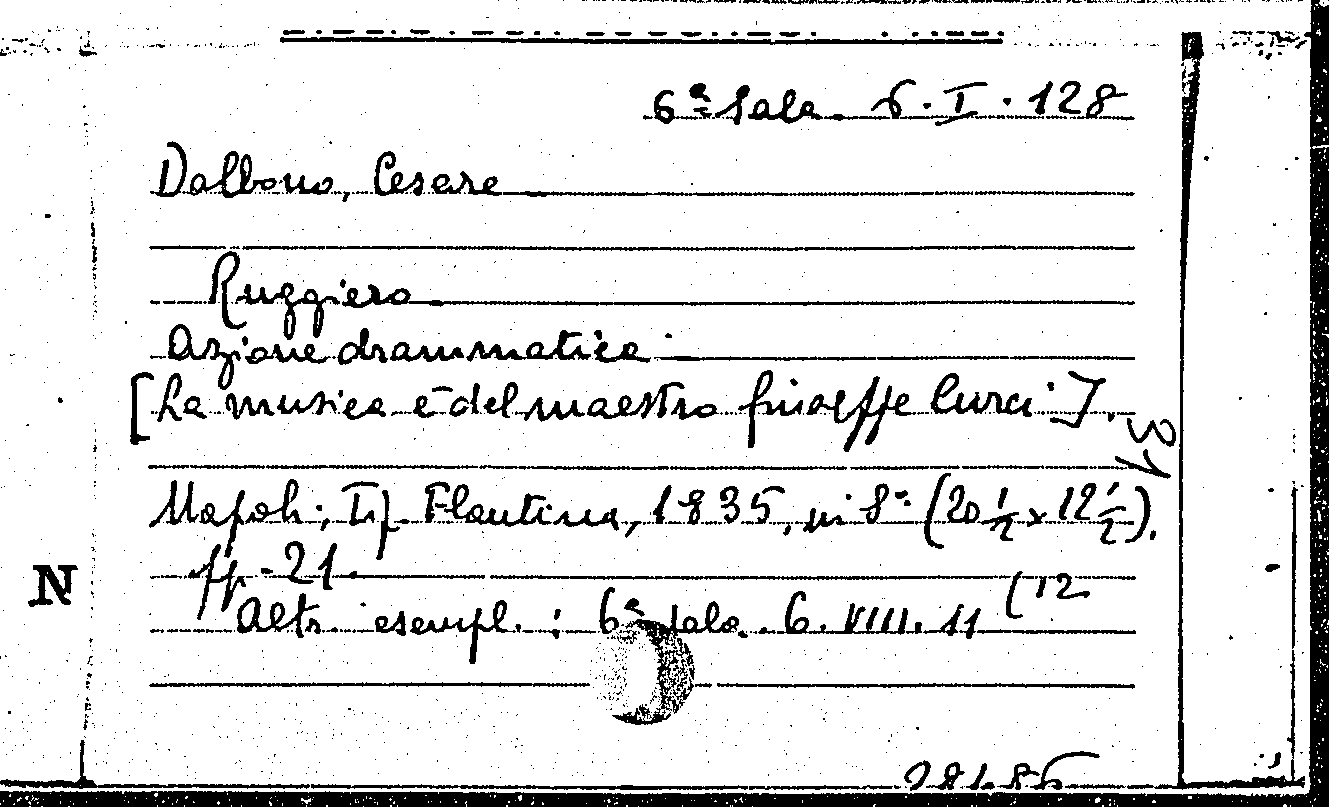 6ª Sala. 6. I. 128
Dalbono, Cesare
Ruggiero.
Azione drammatica
[La musica è del maestro Giuseppe Curci].
31
Napoli, Tip. Flautina, 1835, in 8° (20 1/2 x 12 1/2).
pp. 21.
(12
Altr. esempl. : 6ª Sala. 6. VIII. 11
N